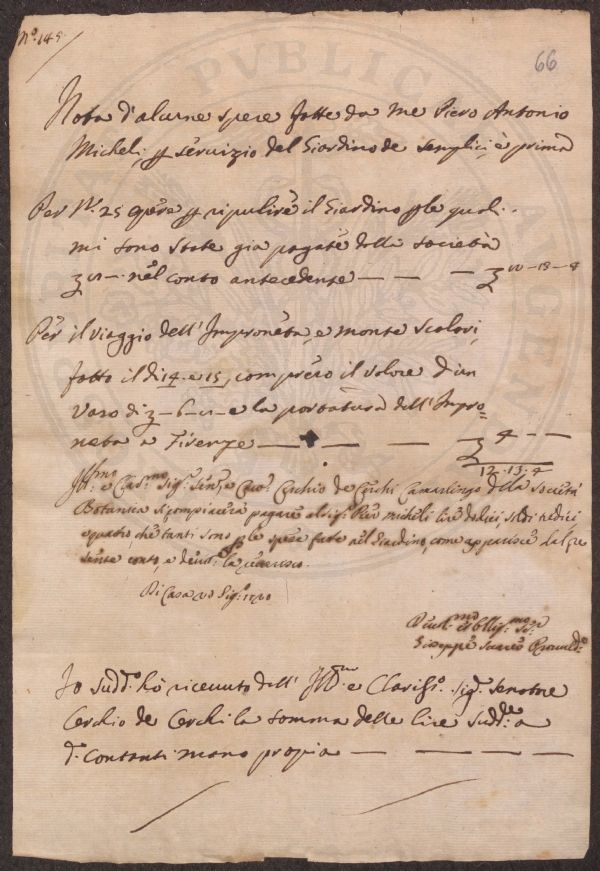 N.º 145
66
Nota d'alcune spese fatte da me Piero Antonio
Micheli, p servizio del Giardino de semplici, e prima
Per N. 25 opere p ripulire il Giardino p le quali
mi sono state gia pagate della società
nel conto antecedente — — —
Per il viaggio dell'Improneta, e monte Scalari,
fatto il di 14. e 15, compreso il valore d'un
vaso di — 6 — e la portatura dell'Impro=
neta a Firenze — — — 4 — —
12.13.4
Ill.mo e Clar.mo Sig.r Sen.re Cerchio de Cerchi Camarlingo della società
Botanica si compiacerà pagare al sig.r Piero Micheli lire dodici, soldi tredici
e quattro, che tanti sono p le spese fatte nel Giardino, come apparisce dal pre
sente conto, e
Di Casa 20 1720
Giuseppe
Io Sudd.º hò ricevuto dell' Ill.mo e Clariss.º Sig.r Senatore
Cerchio de Cerchi la somma delle lire Sudd.e
d. Contanti mano propia — — — —